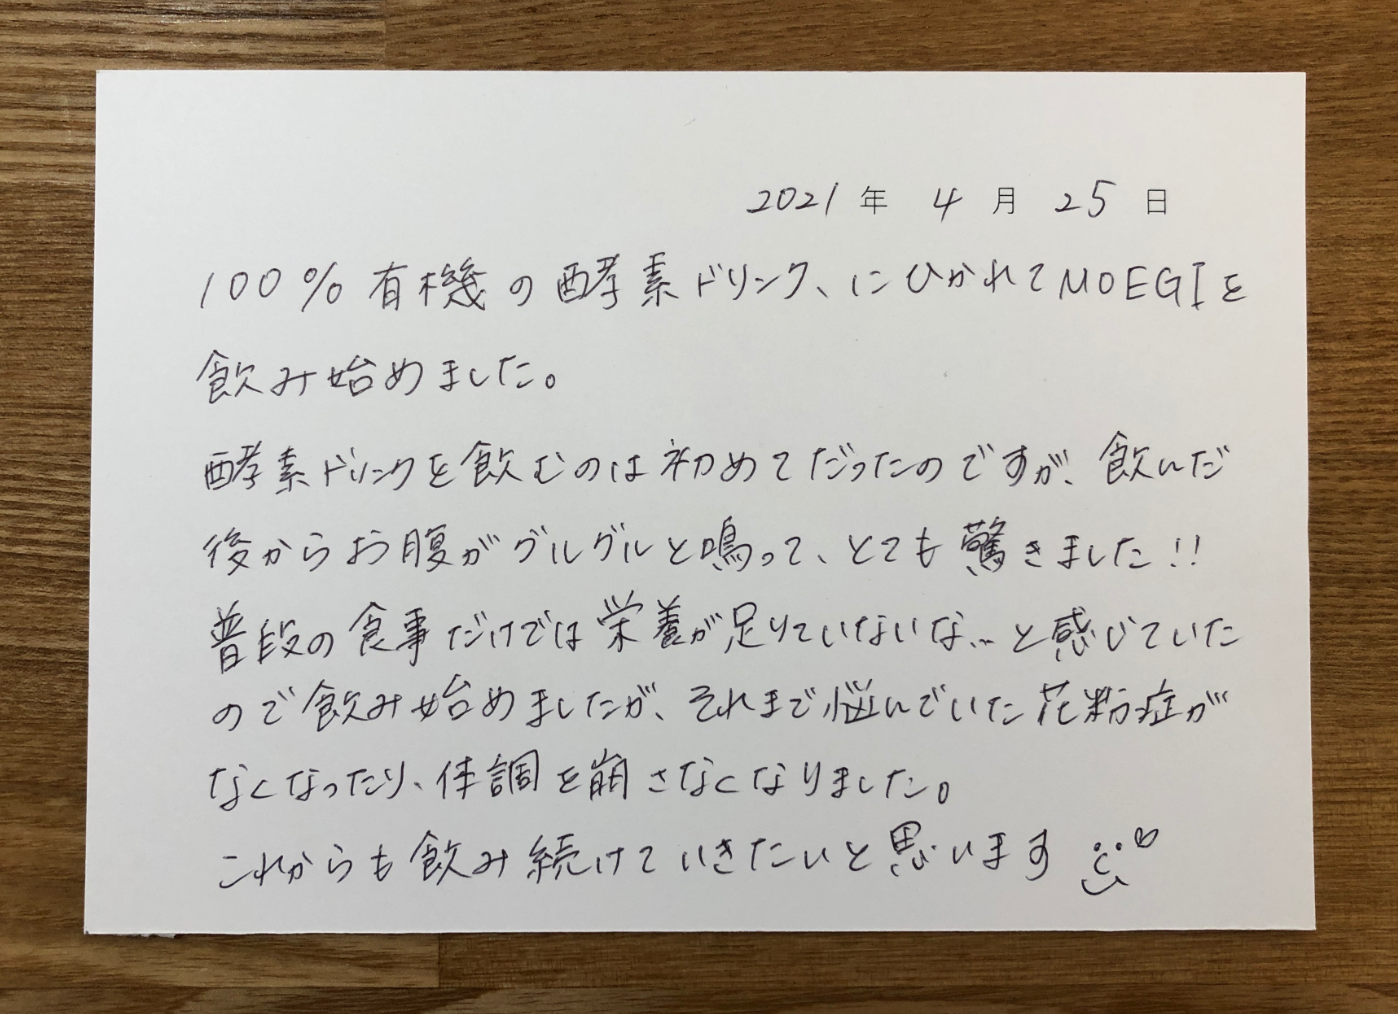 2021年 4月 25日
100%有機の酵素ドリンク、にひかれてMOEGIを
飲み始めました。
酵素ドリンクを飲むのは初めてだったのですが、飲んだ
後からお腹がグルグルと鳴って、とても驚きました!!
普段の食事だけでは栄養が足りていないな…と感じていた
ので飲み始めましたが、それまで悩んでいた花粉症が
なくなったり、体調を崩さなくなりました。
これからも飲み続けていきたいと思います